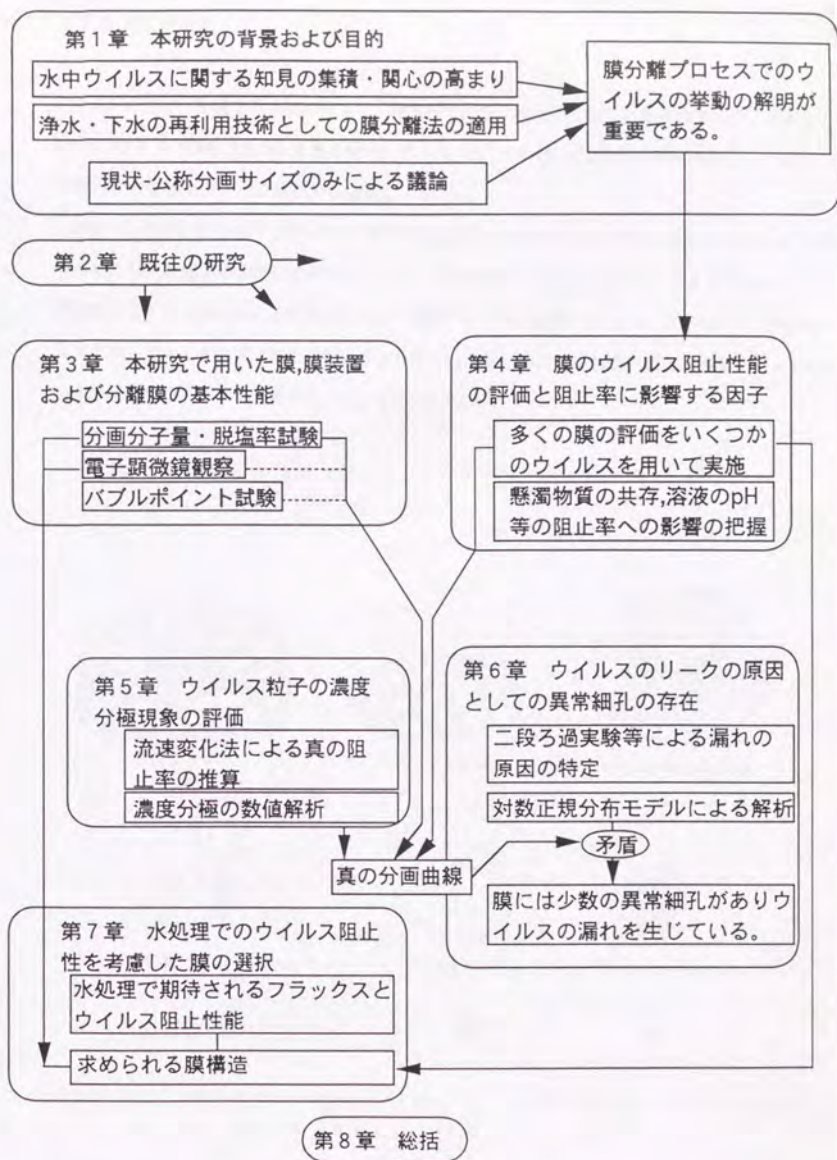 第1章 本研究の背景および目的
水中ウイルスに関する知見の集積・関心の高まり
浄水・下水の再利用技術としての膜分離法の適用
現状-公称分画サイズのみによる議論
膜分離プロセスでのウ
イルスの挙動の解明が
重要である。
第2章 既往の研究
第3章 本研究で用いた膜,膜装置
および分離膜の基本性能
分画分子量・脱塩率試験
電子顕微鏡観察
バブルポイント試験
第4章 膜のウイルス阻止性能
の評価と阻止率に影響する因子
多くの膜の評価をいくつか
のウイルスを用いて実施
懸濁物質の共存,溶液のpH
等の阻止率への影響の把握
第5章 ウイルス粒子の濃度
分極現象の評価
流速変化法による真の阻
止率の推算
濃度分極の数値解析
第6章 ウイルスのリークの原因
としての異常細孔の存在
二段ろ過実験等による漏れの
原因の特定
対数正規分布モデルによる解析
矛盾
真の分画曲線
膜には少数の異常細孔がありウ
イルスの漏れを生じている。
第7章 水処理でのウイルス阻止
性を考慮した膜の選択
水処理で期待されるフラックスと
ウイルス阻止性能
求められる膜構造
第8章 総括